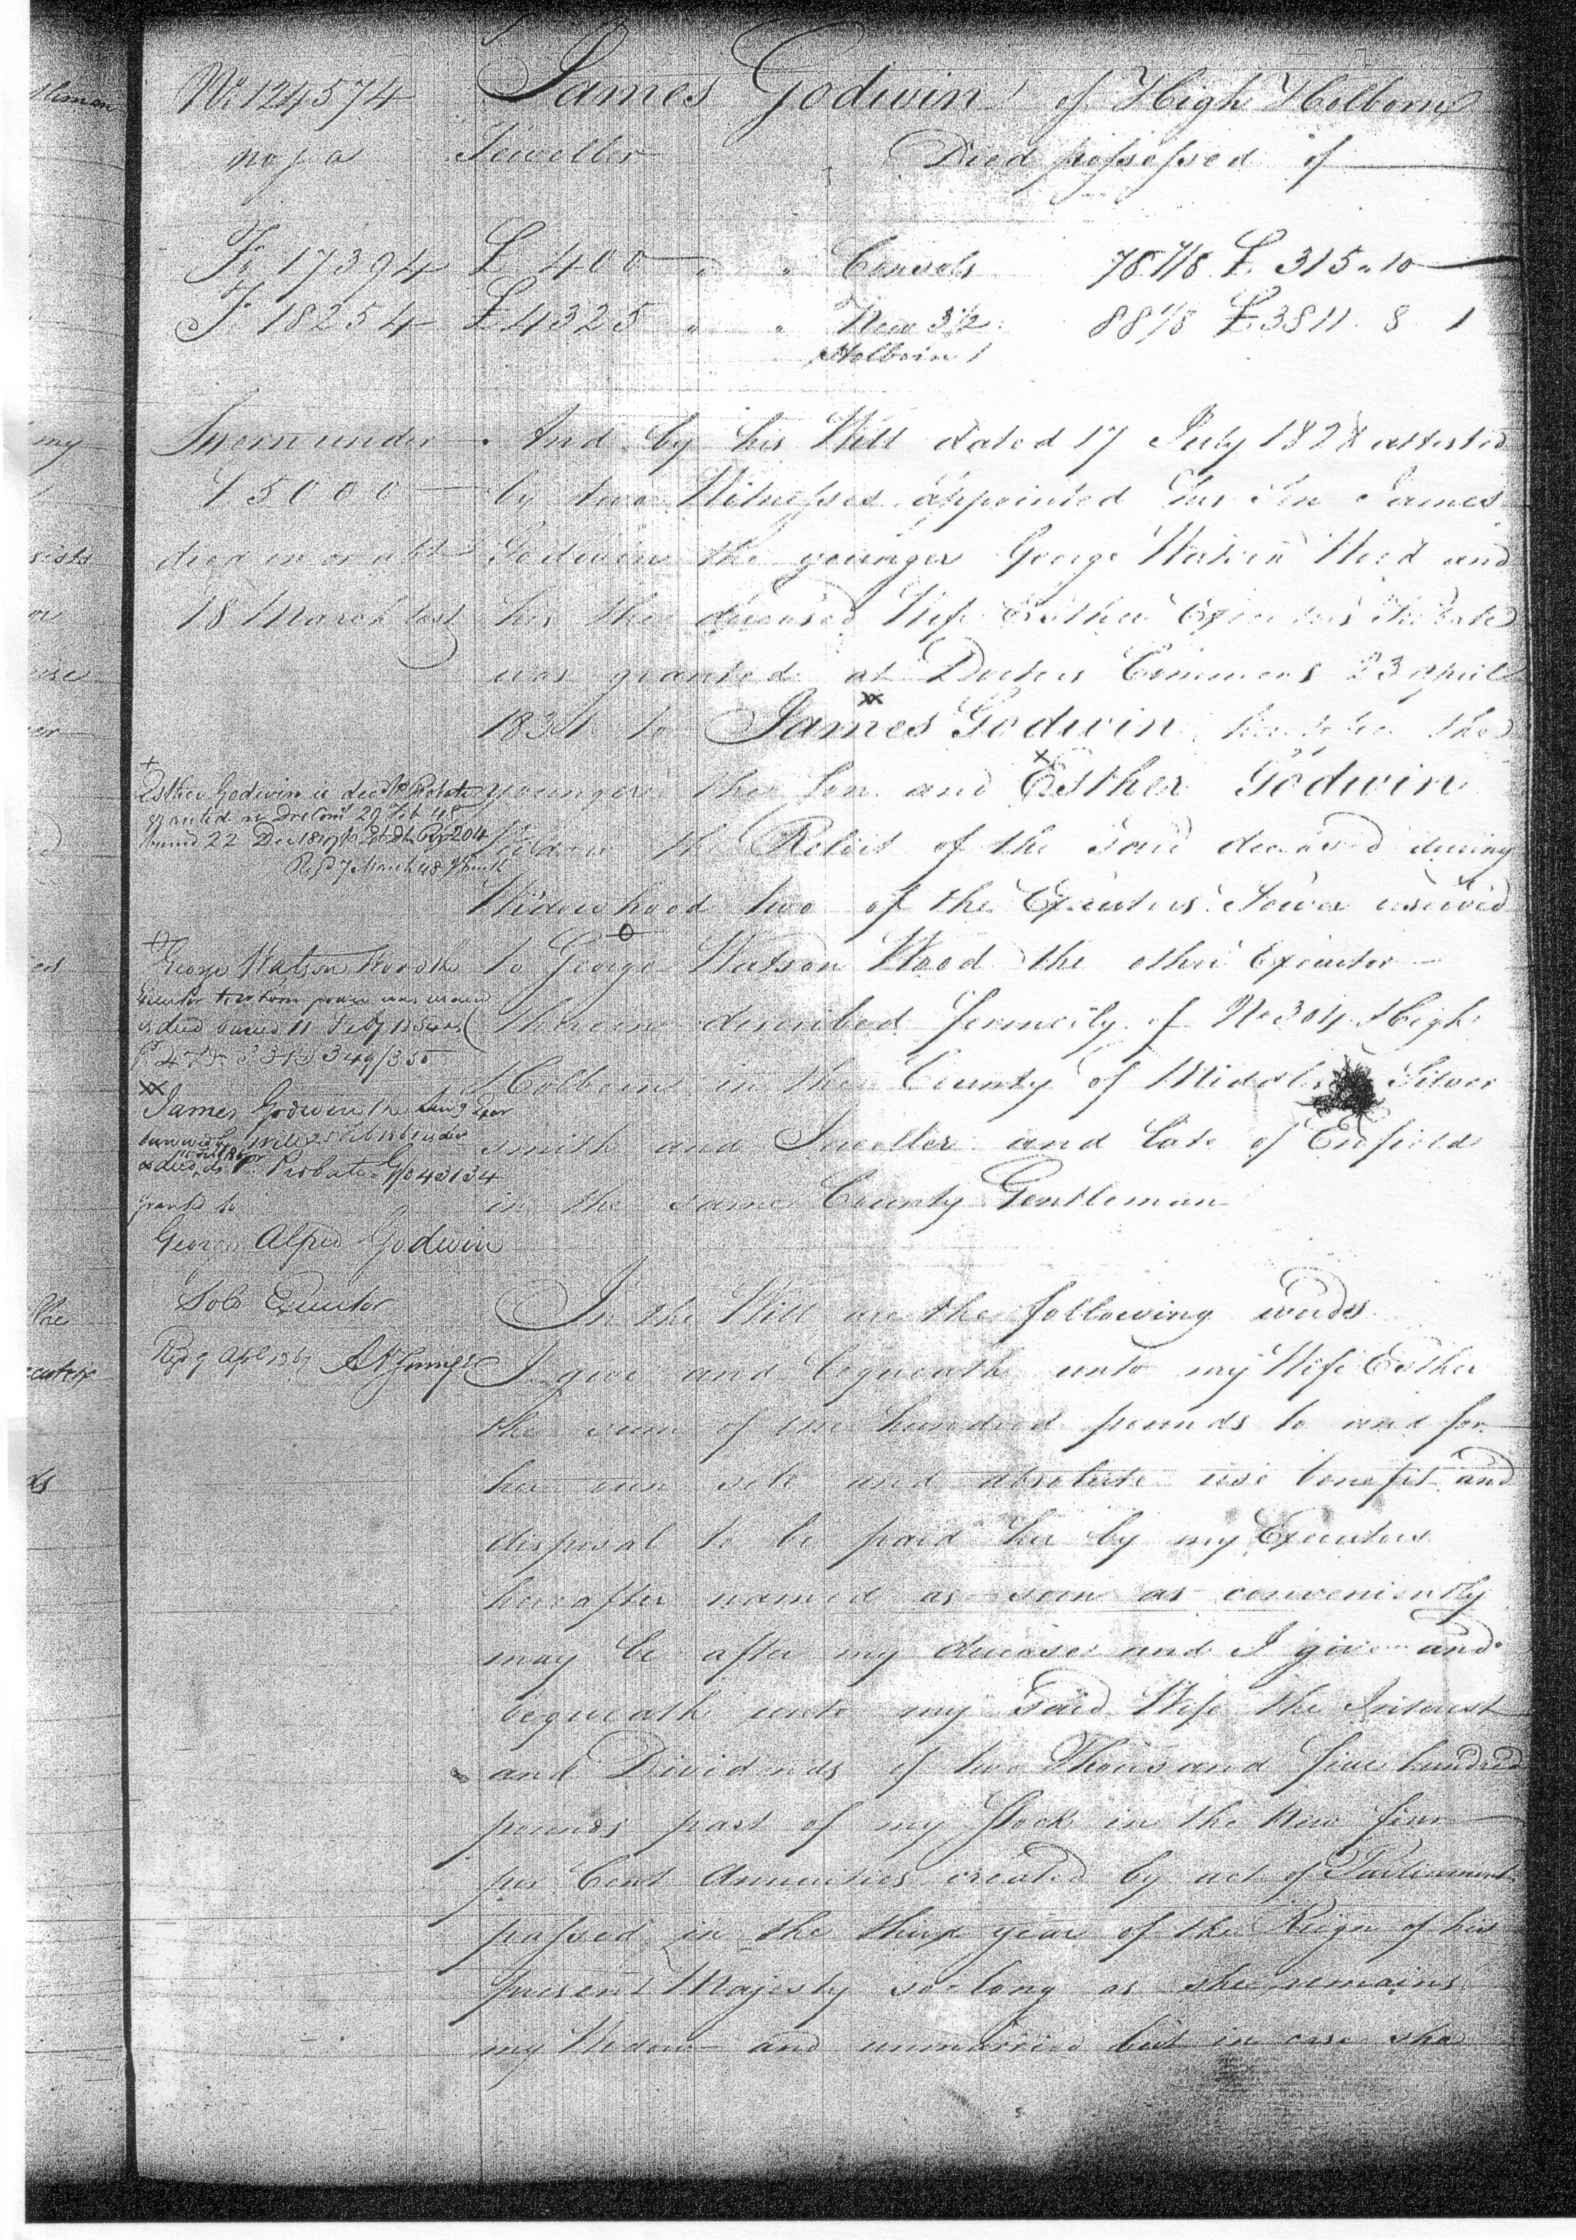 No. 124574 James Godwin of High Holborn
Jeweller Died possessed of
17394 £ 400 " " Consols 78 7/8 £ 315 " 10
18254 £4325 " " New 3 1/2 88 1/8 £3811 . 8 1
Holborn 1
Sworn under And by his Will dated 17 July 1828 attested
£5000 by two Witnesses appointed his Son James
died on or abt Godwin the younger George Watson Wood and
18 March last his then deceased Wife Esther Executors Probate
was granted at Doctors Commons 23 April
1831 to James Godwin heretofore the
younger the Son and Esther Godwin
Widow the Relict of the said deceased during
Widowhood two of the Executors Power reserved
to George Watson Wood the other Executor
therein described formerly of No 304 High
Holborn in the County of Middlx Silver
smith and Jeweller and late of Enfield
in the same County Gentleman
Esther Godwin is decd Probate
granted in Drs Com 29 Feb 48
buried 22 Dec
Regd 7 March 48
George Watson Wood the
Executor to whom power was reserved
is died buried 11 Feby
James Godwin the
Probate
granted to
George Alfred Godwin
Sole Executor
Regd 9 Apl
In the Will are the following words
I give and bequeath unto my Wife Esther
the sum of one hundred pounds to and for
her own sole and absolute use benefit and
disposal to be paid her by my Executors
hereafter named as soon as conveniently
may be after my decease and I give and
bequeath unto my said Wife the Interest
and Dividends of two Thousand five hundred
pounds part of my Stock in the New four
per Cent Annuities created by act of Parliament
passed in the third year of the Reign of his
present Majesty so long as she remains
my Widow and unmarried but in case she